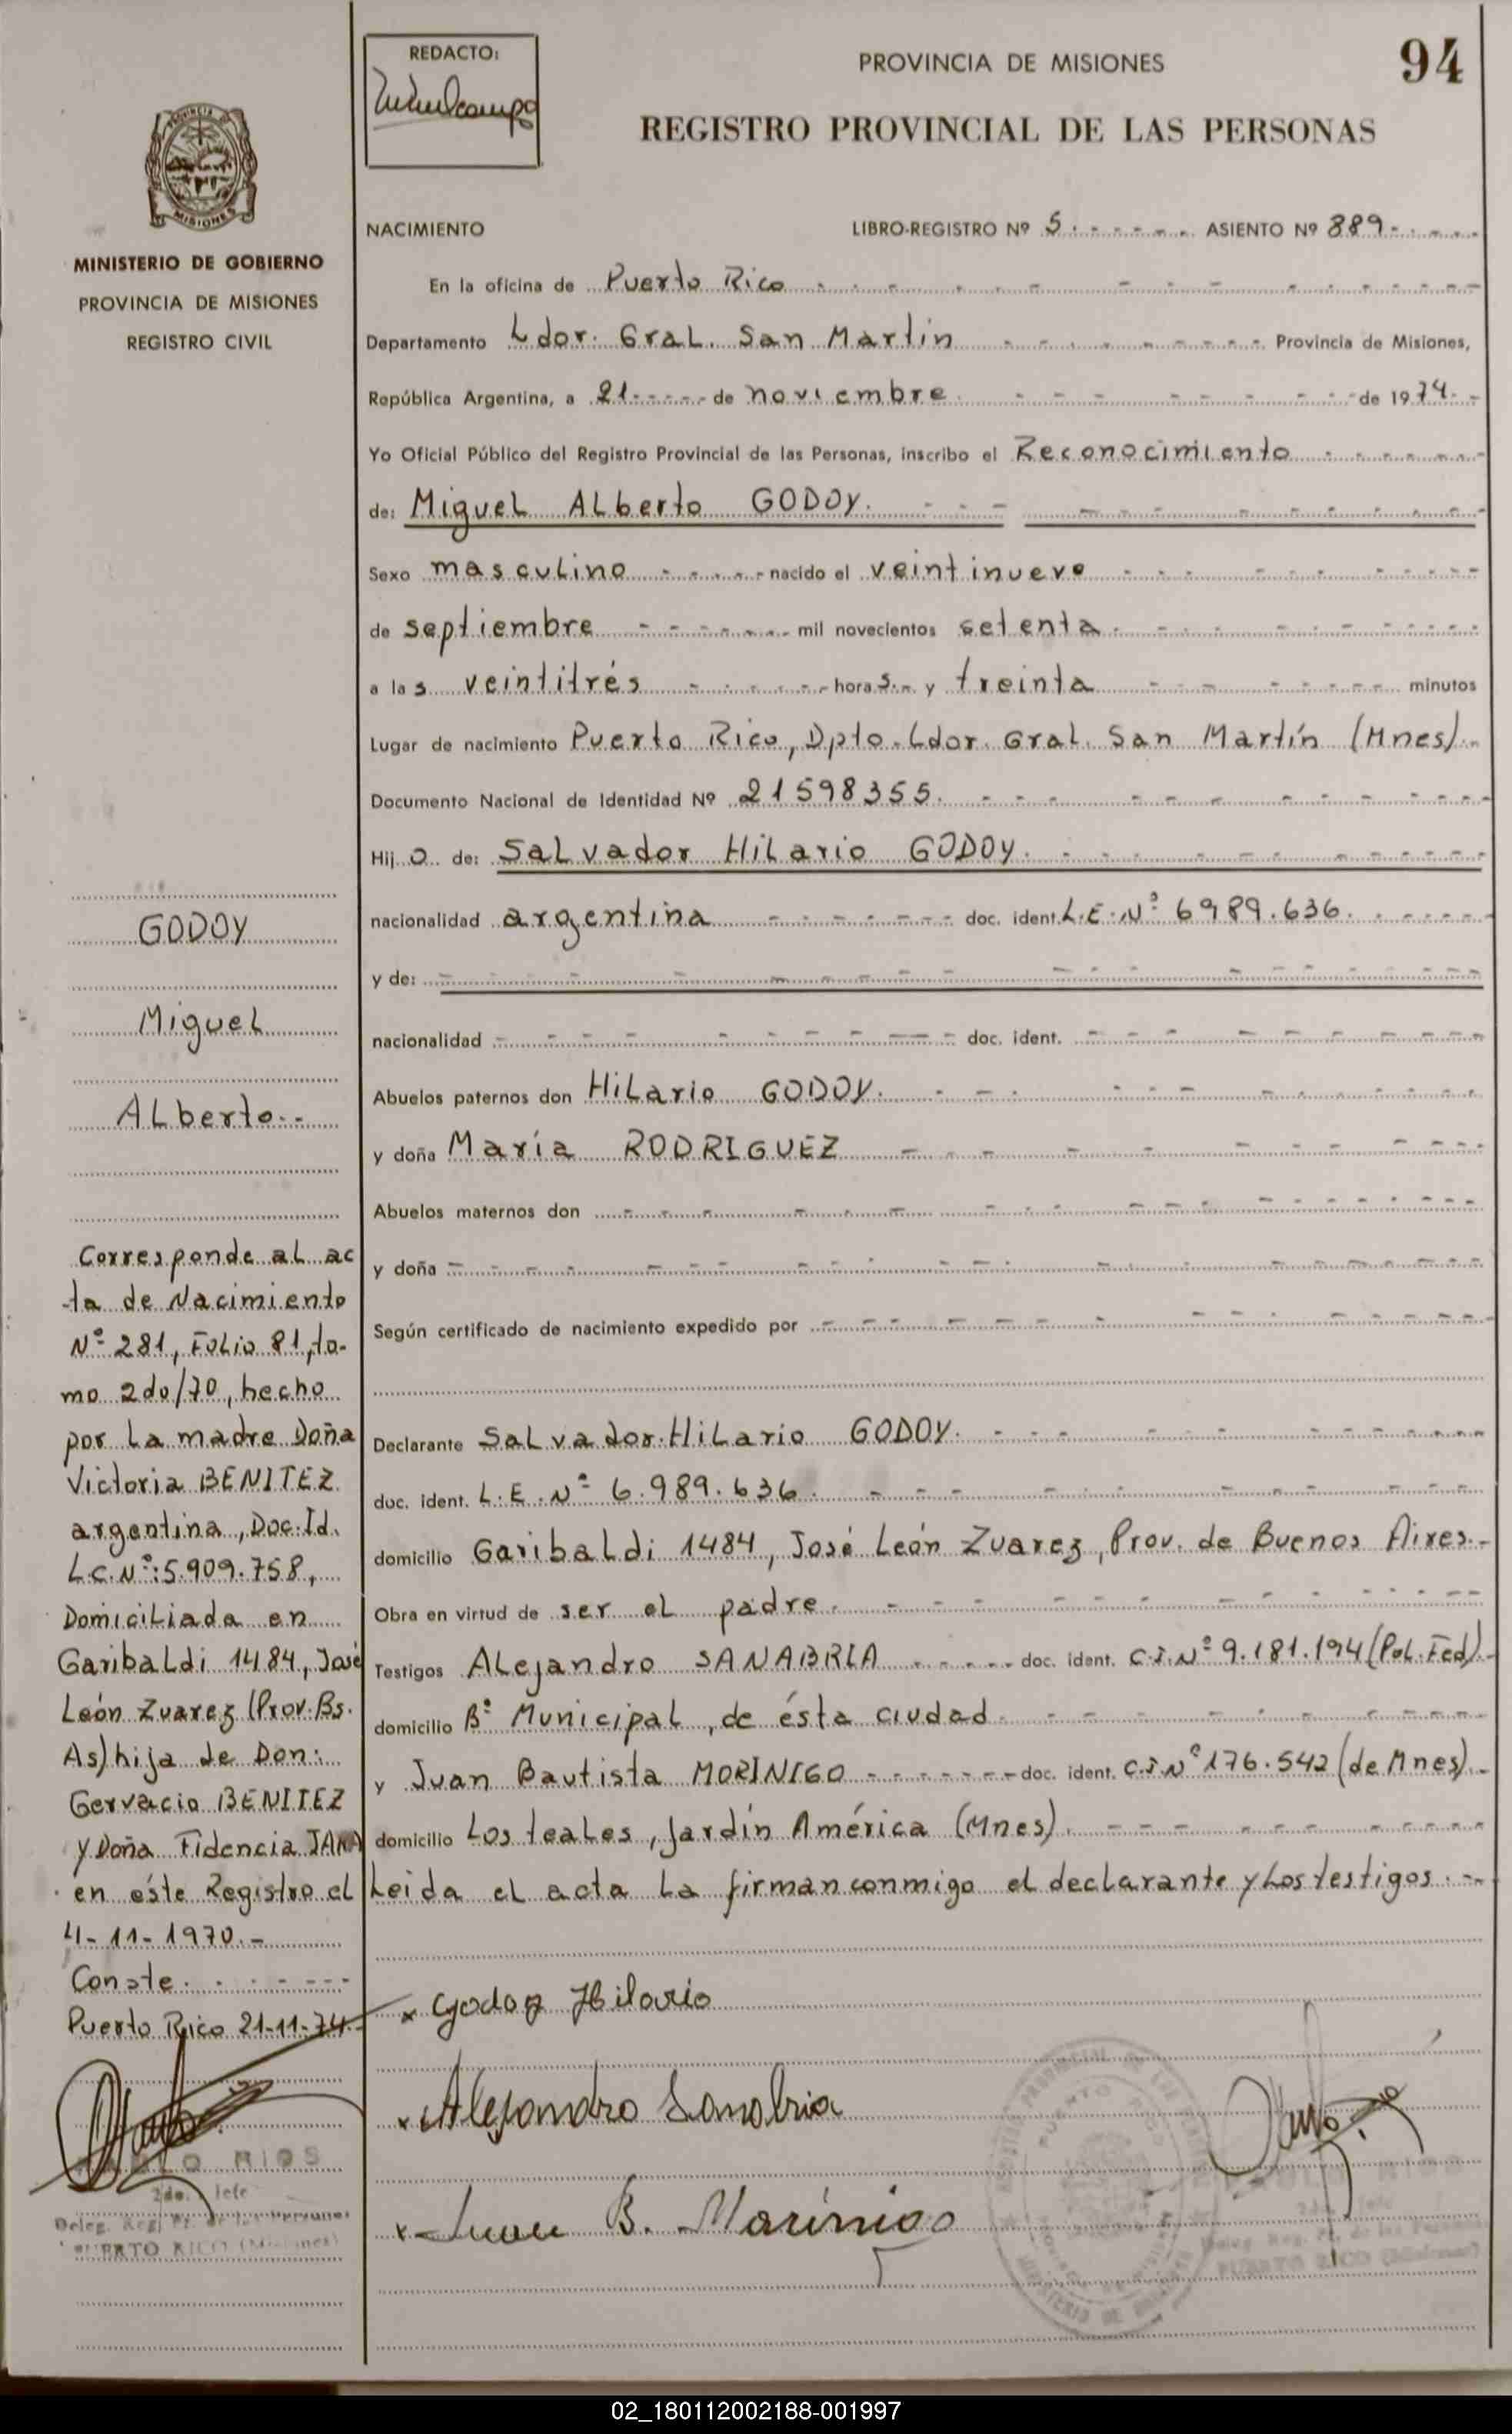 REDACTO:
PROVINCIA DE MISIONES
94
REGISTRO PROVINCIAL DE LAS PERSONAS
PROVINCIA DE
MISIONES
MINISTERIO DE GOBIERNO
PROVINCIA DE MISIONES
REGISTRO CIVIL
NACIMIENTO LIBRO-REGISTRO Nº 5 ASIENTO Nº 889
En la oficina de Puerto Rico
Departamento Ldor. Gral. San Martin Provincia de Misiones,
República Argentina, a 21 de noviembre de 1974
Yo Oficial Público del Registro Provincial de las Personas, inscribo el Reconocimiento
de: Miguel Alberto GODOY.
Sexo masculino nacido el veintinueve
de septiembre mil novecientos setenta
a las veintitrés horas y treinta minutos
Lugar de nacimiento Puerto Rico, Dpto. Ldor. Gral. San Martín (Mnes).
Documento Nacional de Identidad Nº 21598355.
Hijo de: Salvador Hilario GODOY.
nacionalidad argentina doc. ident. L.E. Nº 6989.636.
y de:
nacionalidad doc. ident.
Abuelos paternos don Hilario GODOY.
y doña María RODRIGUEZ
Abuelos maternos don
y doña
Según certificado de nacimiento expedido por
Declarante Salvador Hilario GODOY.
doc. ident. L.E. Nº 6.989.636.
domicilio Garibaldi 1484, José León Zuarez, Prov. de Buenos Aires.-
Obra en virtud de ser el padre.
Testigos Alejandro SANABRIA doc. ident. C.I. Nº 9.181.194 (Pol. Fed).-
domicilio Bº Municipal, de ésta ciudad
y Juan Bautista MORINIGO doc. ident. C.I. Nº 176.542 (de Mnes).-
domicilio Los teales, Jardín América (Mnes).
Leida el acta la firman conmigo el declarante y los testigos.-
x Godoy Hilario
x Alejandro Sanabria
x Juan B. Marinigo
GODOY
Miguel
Alberto.-
Corresponde al ac
-ta de Nacimiento
Nº 281, Folio 81, to-
mo 2do/70, hecho
por la madre Doña
Victoria BENITEZ
argentina, Doc. Id.
L.C. Nº: 5.909.758,
Domiciliada en
Garibaldi 1484, José
León Zuarez (Prov. Bs.
As) hija de Don:
Gervacio BENITEZ
y Doña Fidencia JARA
en éste Registro el
4-11-1970.-
Conste.
Puerto Rico 21-11-74.
RIOS
2do. Jefe
Deleg. Reg. Pr. de las Personas
PUERTO RICO (Misiones)
02_180112002188-001997